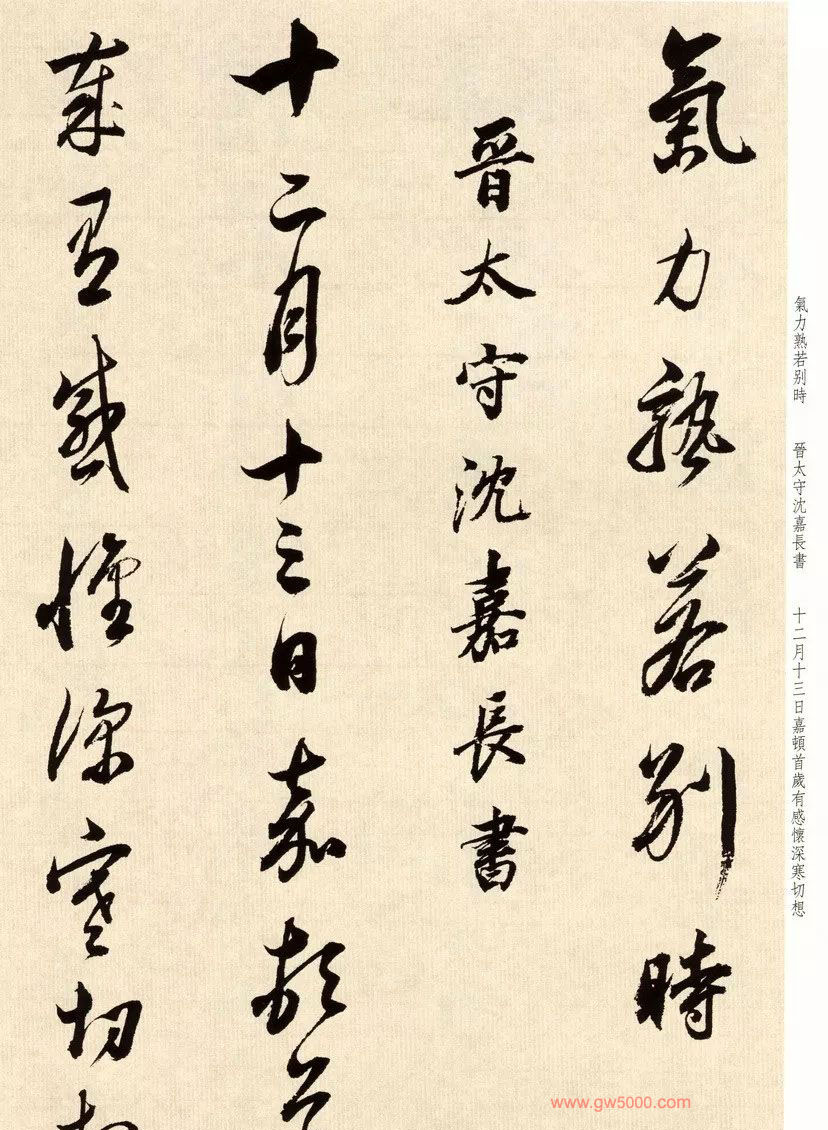 氣力熟若别時
晉太守沈嘉長書
十二月十三日嘉頓首
歲有感懷深寒切想
氣力熟若别時 晉太守沈嘉長書 十二月十三日嘉頓首歲有感懷深寒切想
www.gw5000.com